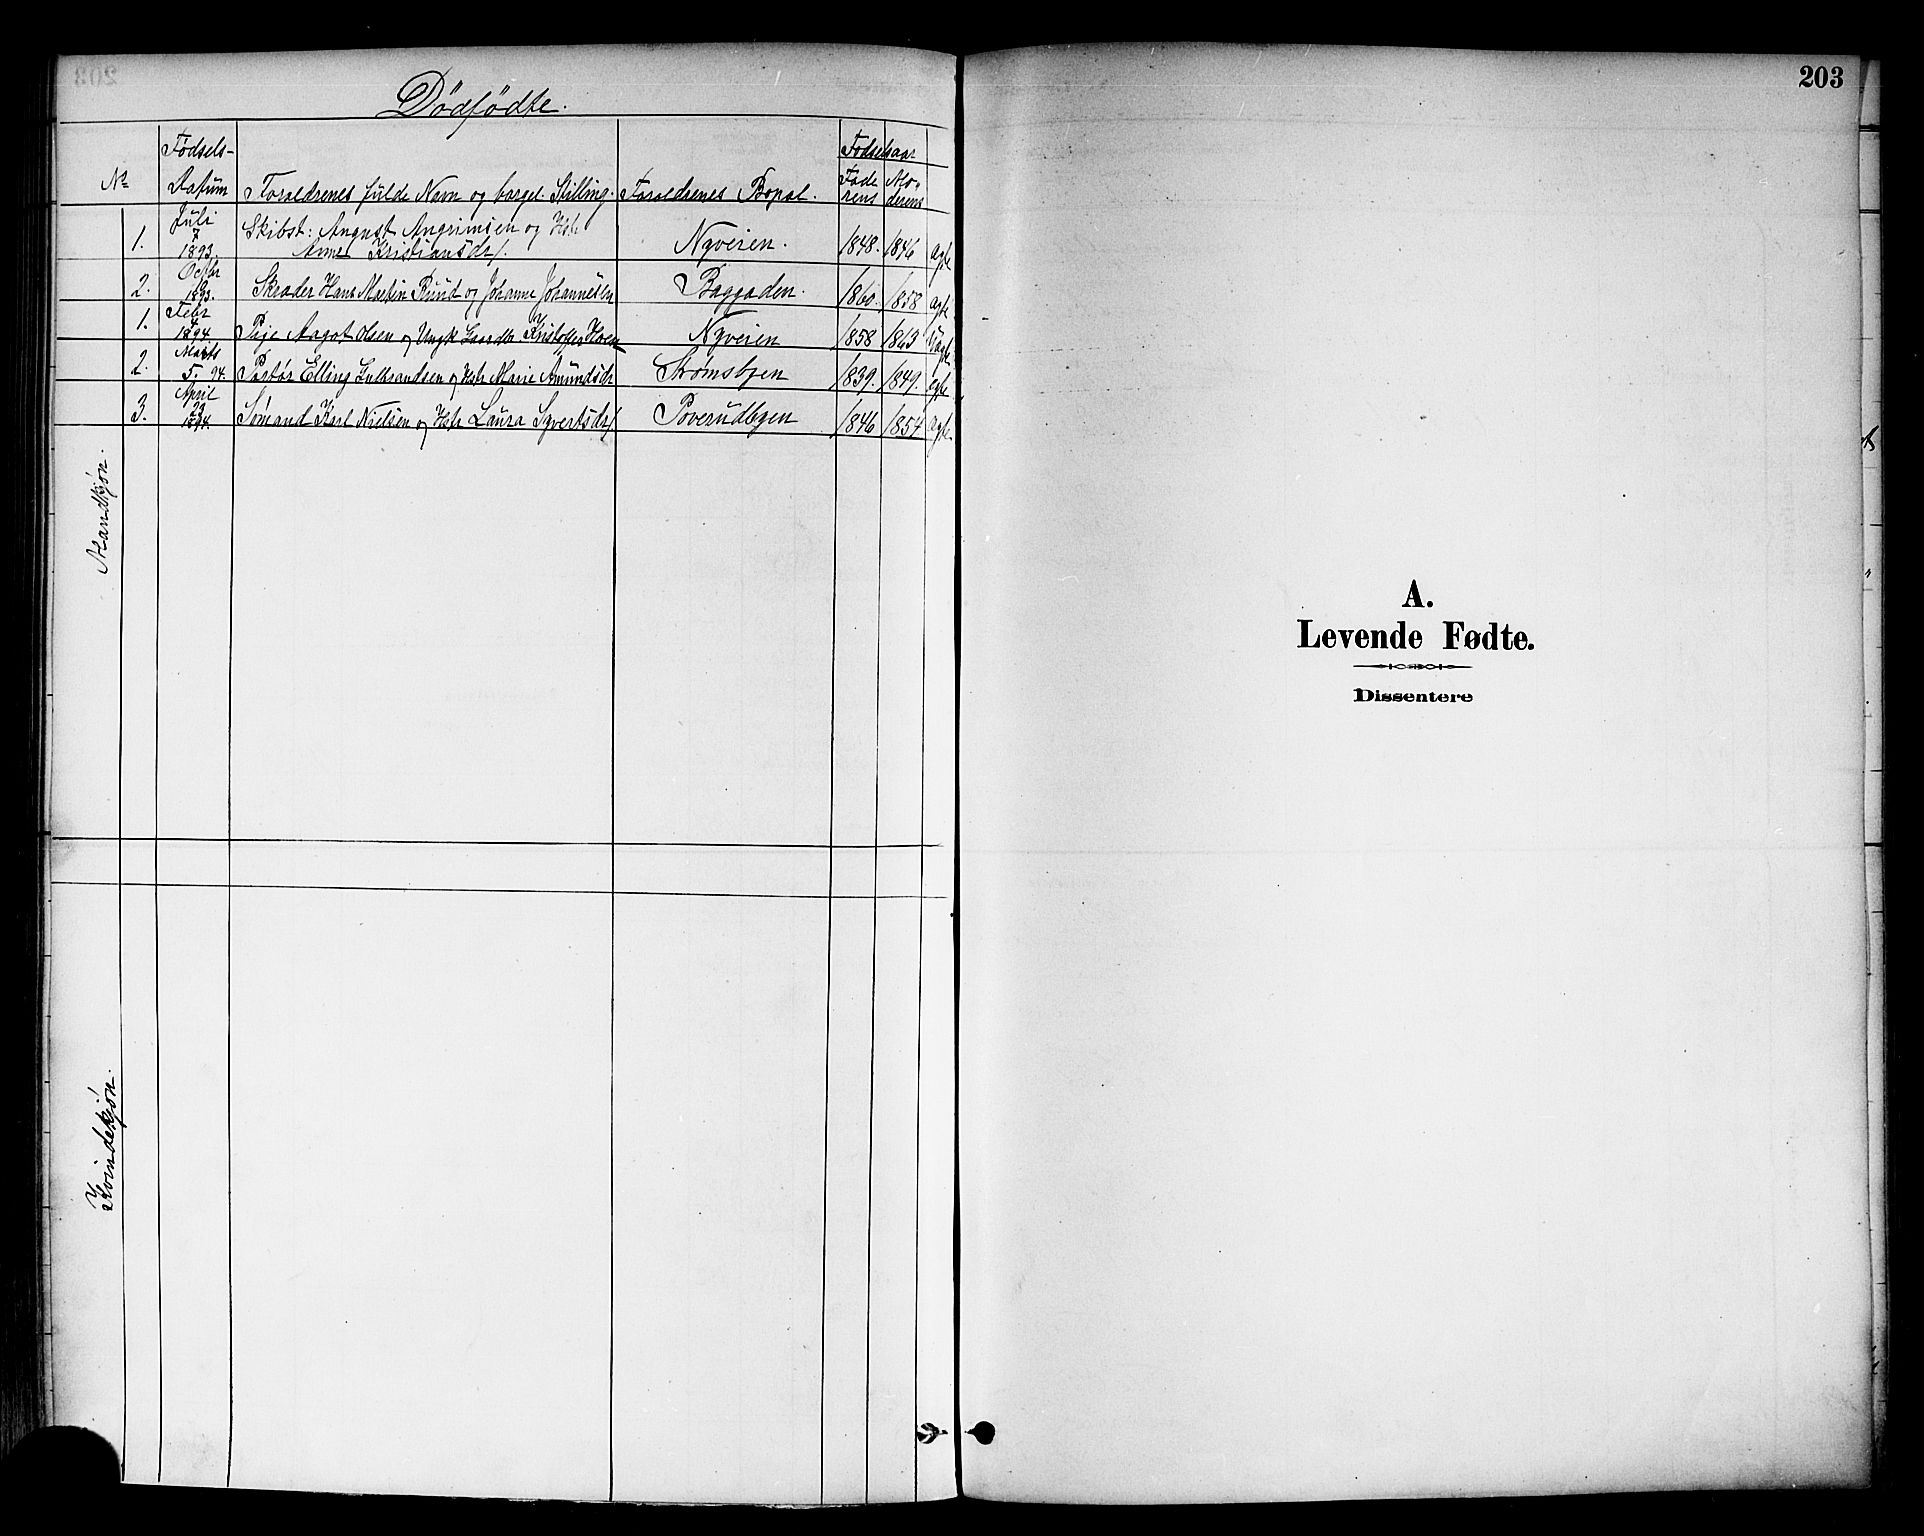 203
Dødfødte.
No Fødsels-Datum Forældrenes fulde Navn og borgel. Stilling. Forældrenes Bopæl. Fødselsaar Faderens Moderens
1. Juli 7 1893. Skibst: August Angrimsen og Hstr Anne Kristiansdr/. Nyveien. 1848. 1846 ægte
2. Octbr 1893. Skræder Hans Martin Ruud og Johanne Johannesen Baggaden. 1860. 1858 ægte
1. Febr 1894. Pige Aagot Olsen og Ungk Kristoffer Nyveien 1858 1863 Uægte
2. Marts 5. 94. Elling Gulbrandsen og Hstr Marie Amundsdr Strømsbyen 1839. 1849. ægte
3. April 29 1894. Sømand Karl Nielsen og Hstr Laura Syvertsdr/ Poverudbyen 1846 1854 ægte
Mandkjøn.
Kvindekjøn.
203
A.
Levende Fødte.
Dissentere